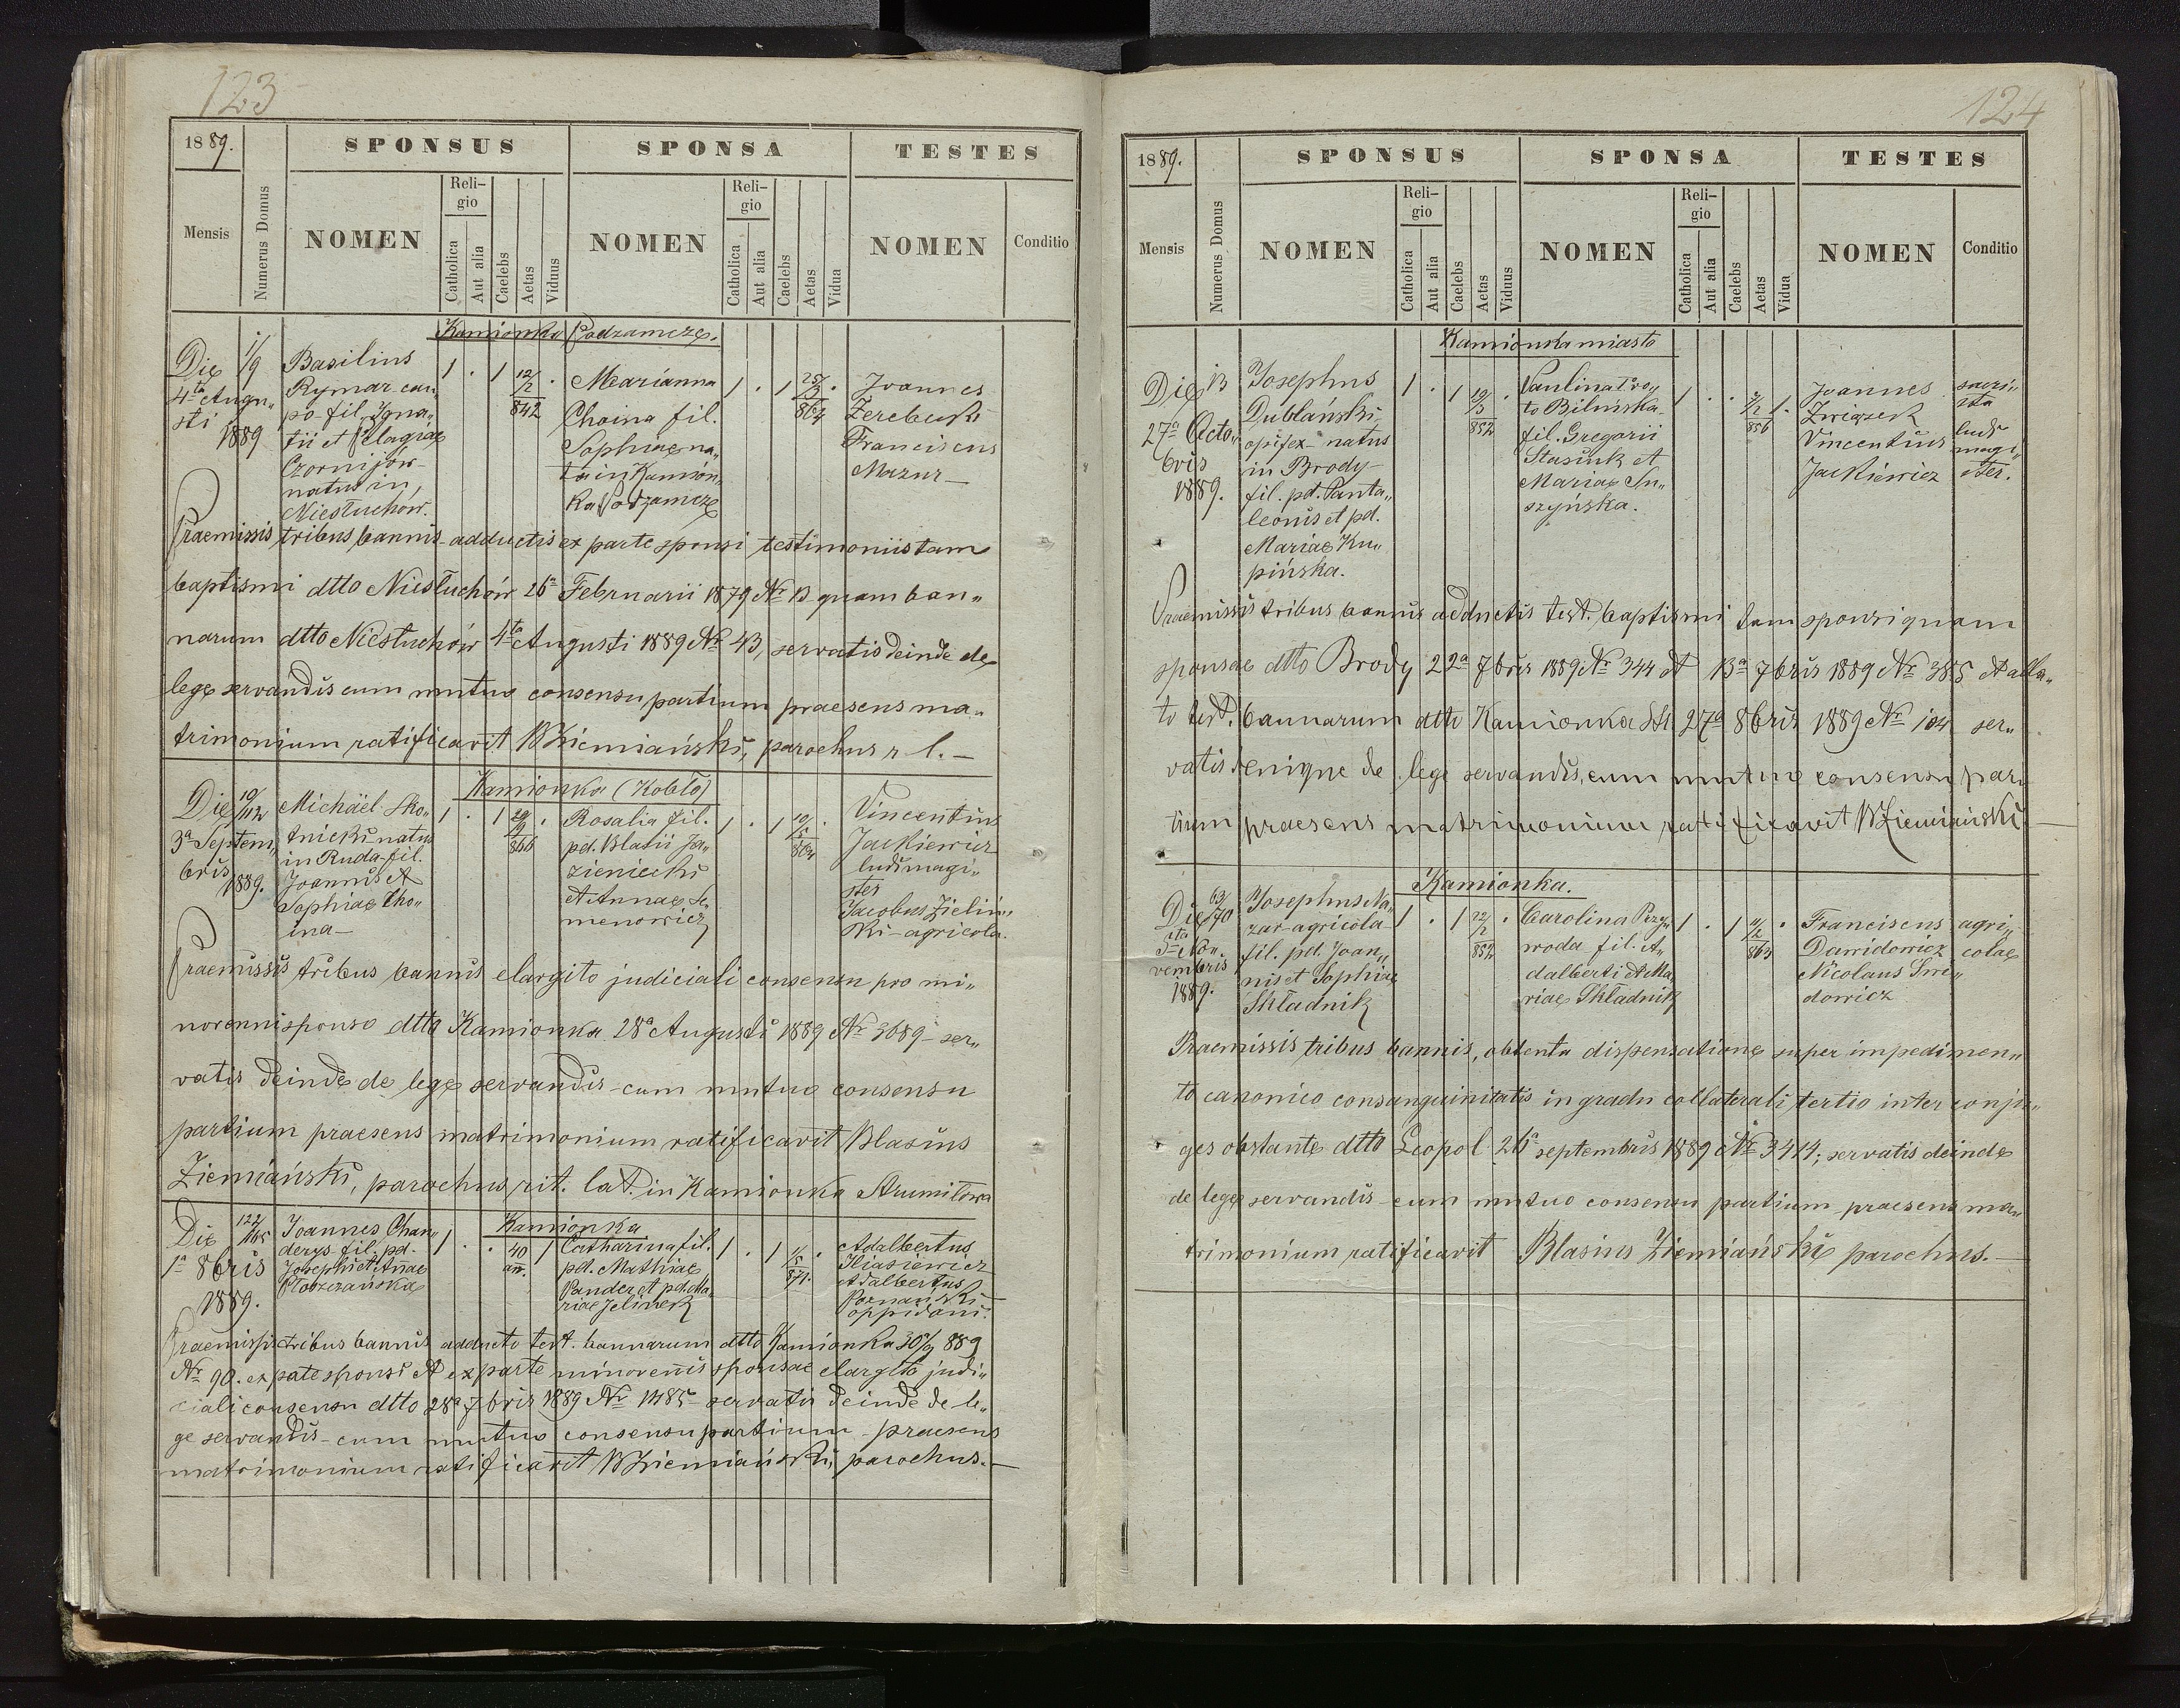 123
1889.
SPONSUS
SPONSA
TESTES
Mensis
Numerus Domus
NOMEN
Religio
Catholica
Aut alia
Caelebs
Aetas
Viduus
NOMEN
Religio
Catholica
Aut alia
Caelebs
Aetas
Vidua
NOMEN
Conditio
Kamionka Podzamcze.
Die
4ta Augu„
sti
1889
1/9
Basilius
Rymar cau„
po fil. Igna„
tii et Pelagiae
Czornijów
natus in,
Niestuchów.
1 . 1 12/2 842 .
Marianna
Choina fil.
Sophiae na„
ta in Kamion„
ka Podzamcze
1 . 1 25/3 864 .
Joannes
Zerebecki
Franciscus
Mazur
Praemissis tribus bannis adductis ex parte sponsi testimoniis tam
baptismi dtto Niestuchów 26a Februarii 1879 Nr 13 quam ban„
narum dtto Niestuchów 4ta Augusti 1889 Nr 43, servatis deinde de
lege servandis cum mutuo consensu partium praesens ma„
trimonium ratificavit BZiemiański, parochus r. l. —
Kamionka (Kobło)
Die
3a Septem„
bris
1889.
10/112
Michäel Sko„
tnicki natus
in Ruda fil.
Joannis et
Sophiae Cho„
ina
1 . 1 29/9 866 .
Rosalia fil.
pd. Blasii Ja„
zieniecki
et Annae Se„
menowicz
1 . 1 10/5 864 .
Vincentius
Jackiewicz
ludimagi„
ster
Jacobus Zieliń„
ki agricola.
Praemissis tribus bannis elargito judiciali consensu pro mi„
norenni sponso dtto Kamionka 28a Augusti 1889 Nr 3689 ser„
vatis deinde de lege servandis cum mutuo consensu
partium praesens matrimonium ratificavit Blasius
Ziemiański, parochus rit. lat. in Kamionka Strumiłowa
Kamionka
Die
1a 8bris
1889.
122/165
Joannes Chan„
derys fil. pd.
Josephi et Annae
Płoszczańska
1 . . 40 an. 1
Catharina fil.
pd. Mathiae
Pander et pd. Ma„
riae Jelinek
1 . 1 11/5 871. .
Adalbertus
Iliasiewicz
Adalbertus
Poznański
oppidani.
Praemissis tribus bannis adducto test. bannarum dtto Kamionka 30/9 889
Nr 90. ex parte sponsi et ex parte minorennis sponsae elargito judi„
ciali consensu dtto 28a 7bris 1889 Nr 11185 servatis deinde de le„
ge servandis cum mutuo consensu partium praesens
matrimonium ratificavit BZiemiański, parochus. —
124
1889.
SPONSUS
SPONSA
TESTES
Mensis
Numerus Domus
NOMEN
Religio
Catholica
Aut alia
Caelebs
Aetas
Viduus
NOMEN
Religio
Catholica
Aut alia
Caelebs
Aetas
Vidua
NOMEN
Conditio
Kamionka miasto
Die
27a Octo„
bris
1889.
13
Josephus
Dublański
opifex natus
in Brody
fil. pd. Panta„
leonis et pd.
Mariae Ku„
pińska.
1 . 1 19/3 852 .
Paulina 1o vo„
to Bilińska
fil. Gregorii
Stasiuk et
Mariae Su„
szyńska.
1 . . 2/2 856 1.
Joannes
Związek
Vincentius
Jackiewicz
sacri„
sta
ludi
magi„
ster.
Praemissis tribus bannis adductis test. baptismi tam sponsi quam
sponsae dtto Brody 22a 7bris 1889 Nr 344 et 13a 7bris 1889 Nr 385 et alla„
to test. bannarum dtto Kamionka Str. 27a 8bris 1889 Nr 104 ser„
vatis denique de lege servandis, cum mutuo consensu par„
tium praesens matrimonium ratificavit BZiemiański. —
Kamionka.
Die
5ta No„
vembris
1889.
63/70
Josephus Na„
zar agricola
fil. pd. Joan„
nis et Sophiae
Składnik
1 . 1 22/2 852 .
Carolina Przy„
woda fil. A„
dalberti et Ma„
riae Składnik
1 . 1 11/2 863 .
Franciscus
Dawidowicz
Nicolaus Swi„
dowicz
agri„
colae
Praemissis tribus bannis, obtenta dispensatione super impedimen„
to canonico consanguinitatis in gradu collaterali tertio inter conju„
ges obstante dtto Leopol 26a septembris 1889 Nr 3414; servatis deinde
de lege servandis cum mutuo consensu partium praesens ma„
trimonium ratificavit Blasius Ziemiański parochus. —